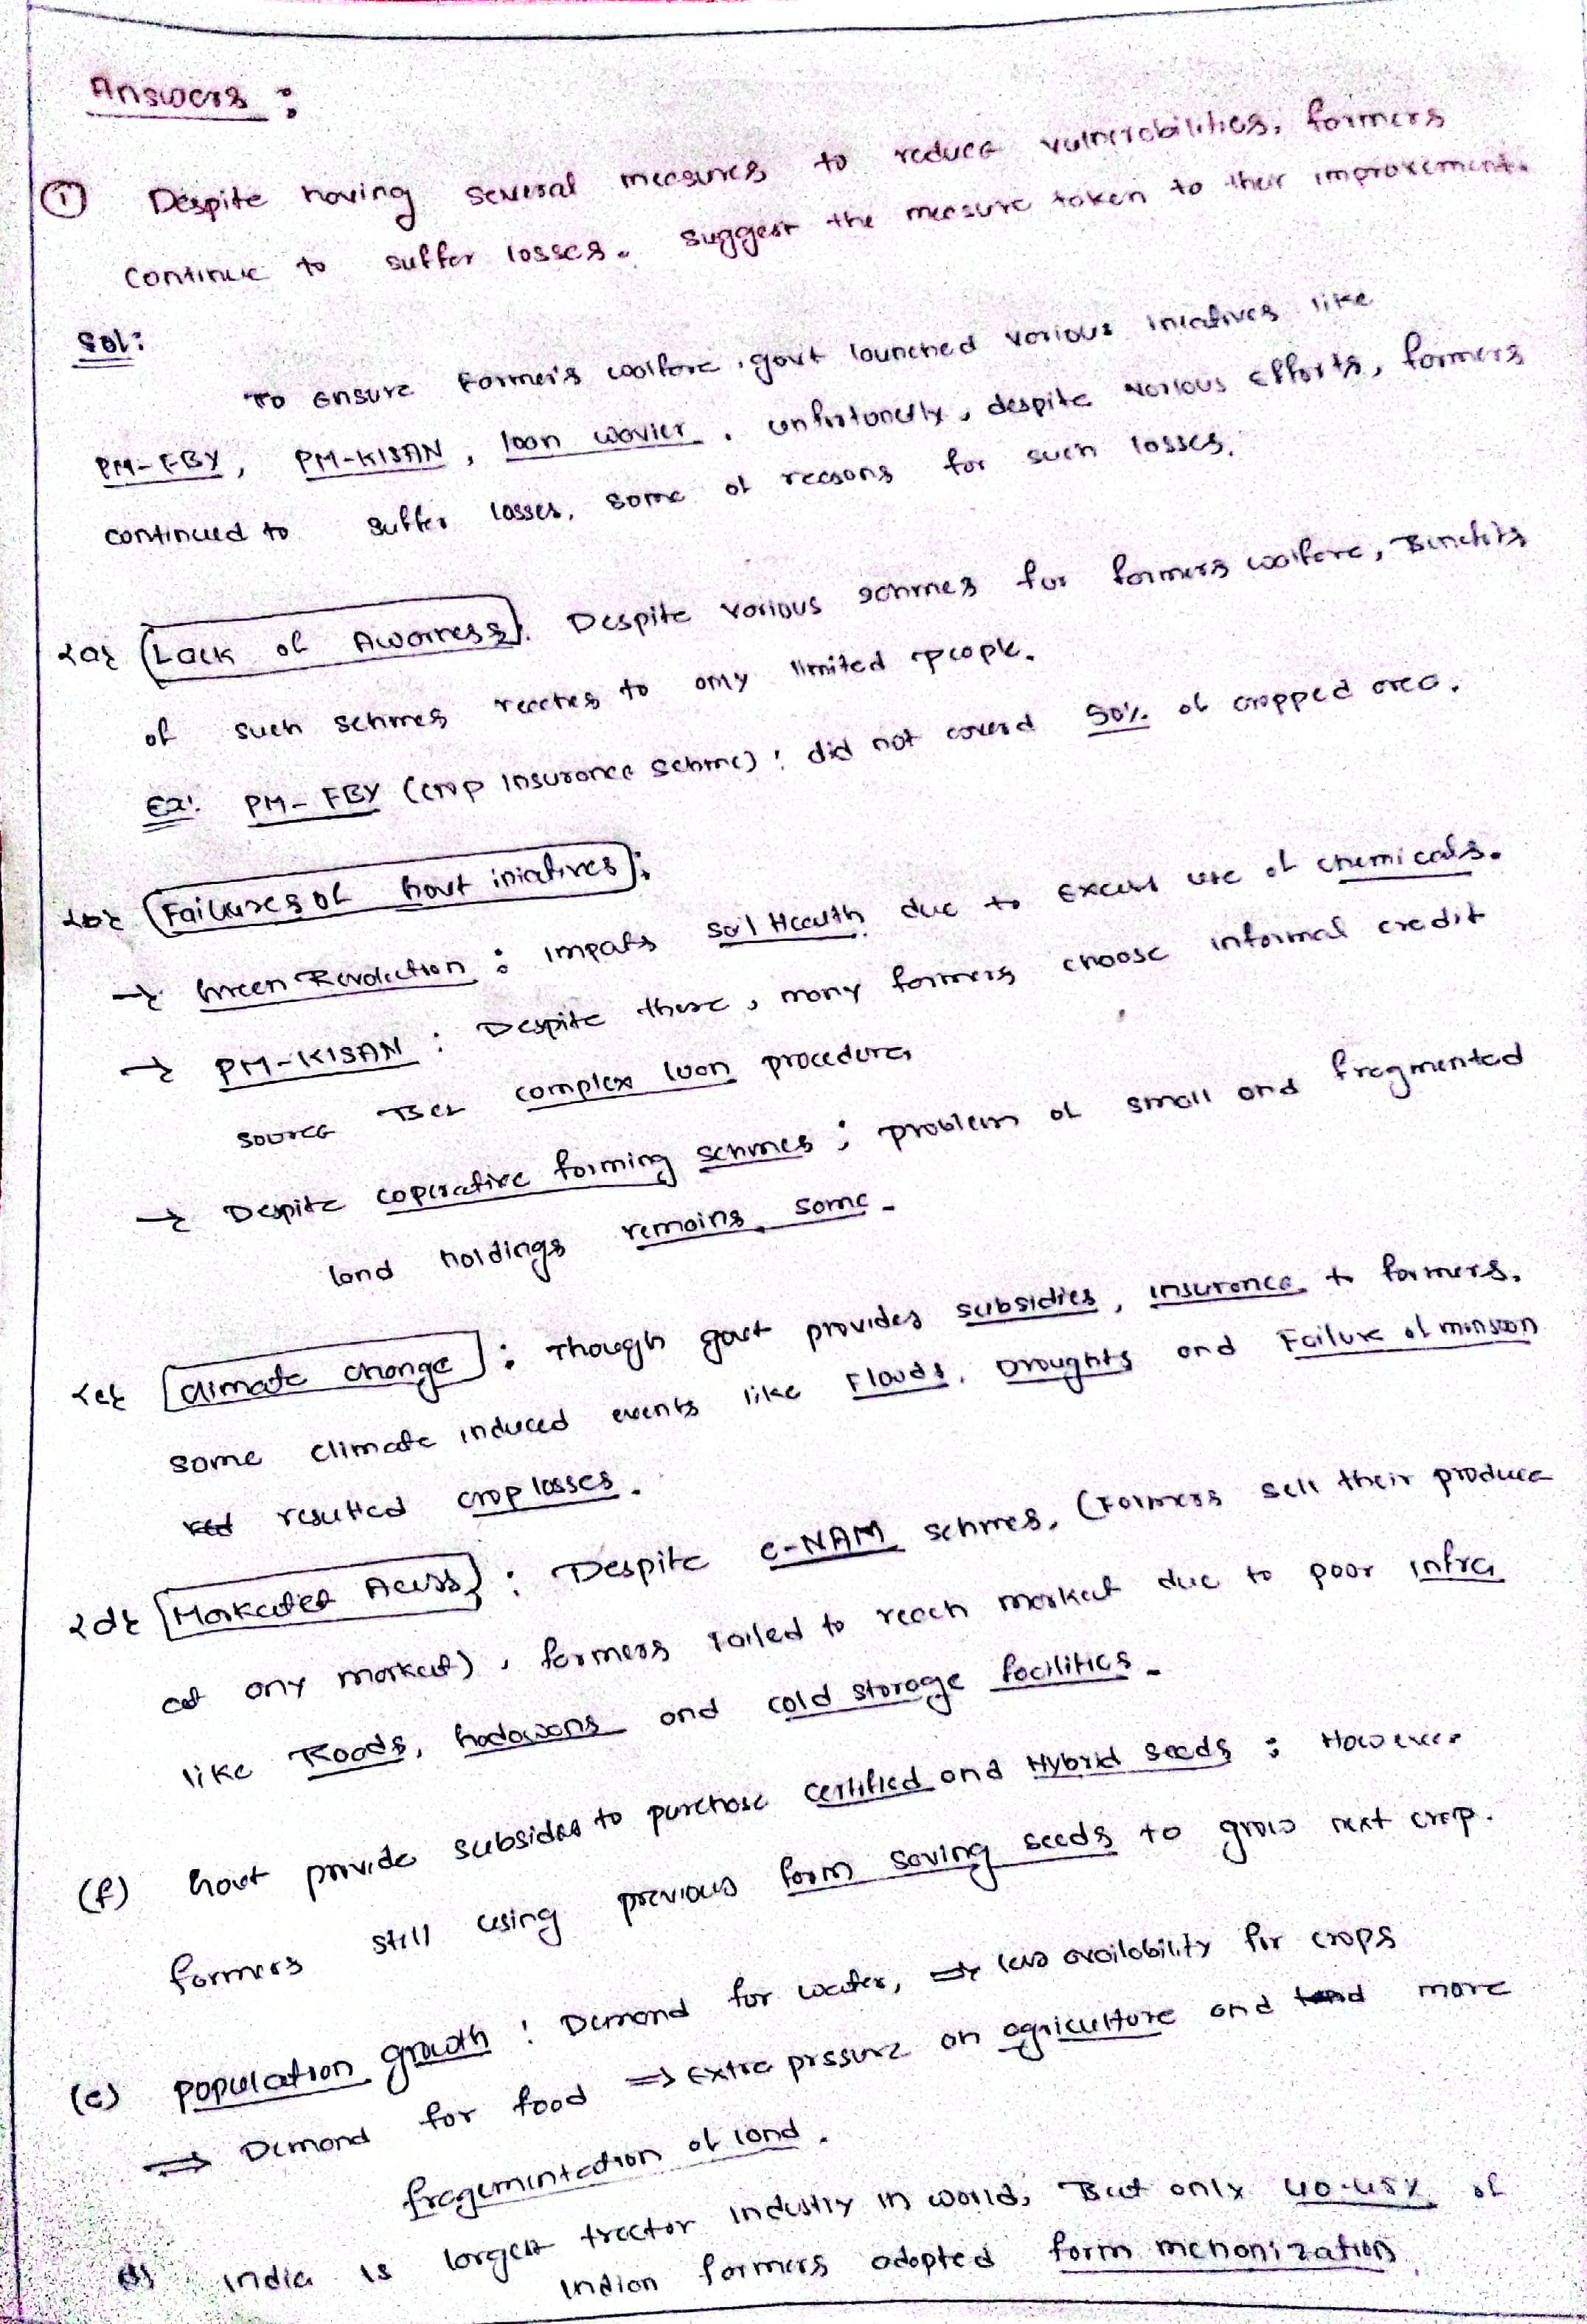 Answers :
① Despite having several measures to reduce vulnerabilities, farmers
continue to suffer losses. suggest the measure taken to their improvement.
Sol:
To ensure Farmer's walfare, govt launched various iniatives like
PM-FBY, PM-KISAN, loan wavier. unfurtunetly, despite various efforts, farmers
continued to suffer losses, some of reasons for such losses.
<a> Lack of Awarness: Despite various schmes for farmers walfare, Benefits
of such schmes reaches to only limited people.
Ex: PM-FBY (crop insurance schme): did not coverd 50% of cropped area.
<b> Failures of Govt iniatives:
→ Green Revolution: impats soil Health due to excess use of chemicals.
→ PM-KISAN: Despite these, many farmers choose informal credit
source Bcz complex loan procedures
→ Despite coperative farming schmes; problem of small and fragmented
land holdings remains same.
<c> Climate change: Though govt provides subsidies, insurance to farmers,
some climate induced events like Floods, Droughts and Failure of monsoon
resulted crop losses.
<d> Market Acess: Despite e-NAM schmes, (Farmers sell their produce
at any market), farmers failed to reach market due to poor infra
like Roads, Godowons and cold storage facilities.
(f) Govt provide subsides to purchase certified and Hybrid seeds; However
farmers still using previous farm saving seeds to grow next crop.
(e) population growth: Demand for water, ⇒ less availability for crops
⇒ Demand for food ⇒ Extra pressure on agriculture and more
fragemintation of land.
India is largest tractor industry in world, But only 40-45% of
indian farmers adopted farm mchanization